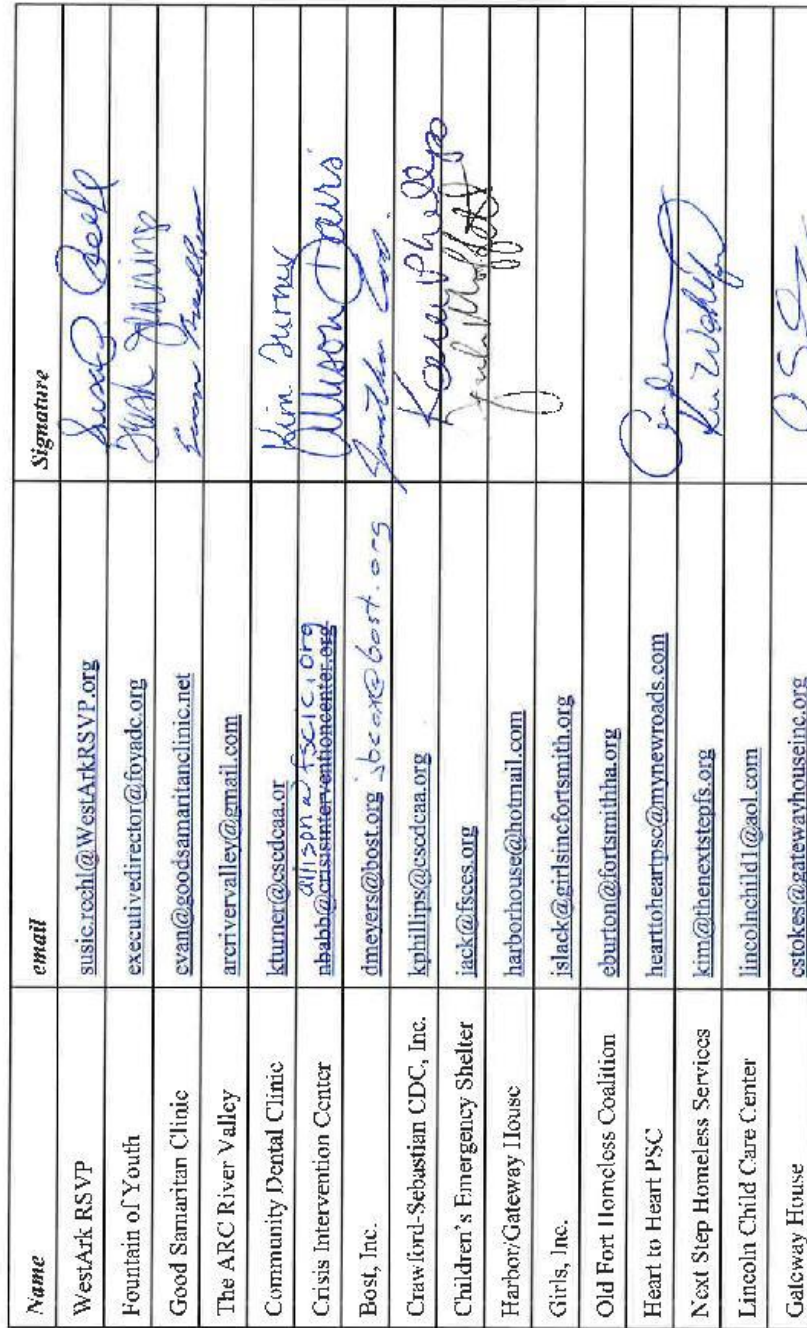 Name email Signature
WestArk RSVP susie.reehl@WestArkRSVP.org Susie Reehl
Fountain of Youth executivedirector@foyadc.org
Good Samaritan Clinic evan@goodsamaritanclinic.net
The ARC River Valley arcrivervalley@gmail.com
Community Dental Clinic kturner@cscdcaa.or Kim Turner
Crisis Intervention Center nbabb@crisisinterventioncenter.org allison@fscic.org Allison Davis
Bost, Inc. dmeyers@bost.org jbcox@bost.org Jonathan Cox
Crawford-Sebastian CDC, Inc. kphillips@cscdcaa.org Karen Phillips
Children's Emergency Shelter jack@fsces.org Jack Moffett
Harbor/Gateway House harborhouse@hotmail.com
Girls, Inc. jslack@girlsincfortsmith.org
Old Fort Homeless Coalition eburton@fortsmithha.org
Heart to Heart PSC hearttoheartpsc@mynewroads.com
Next Step Homeless Services kim@thenextstepfs.org
Lincoln Child Care Center lincolnchild1@aol.com
Gateway House cstokes@gatewayhouseinc.org